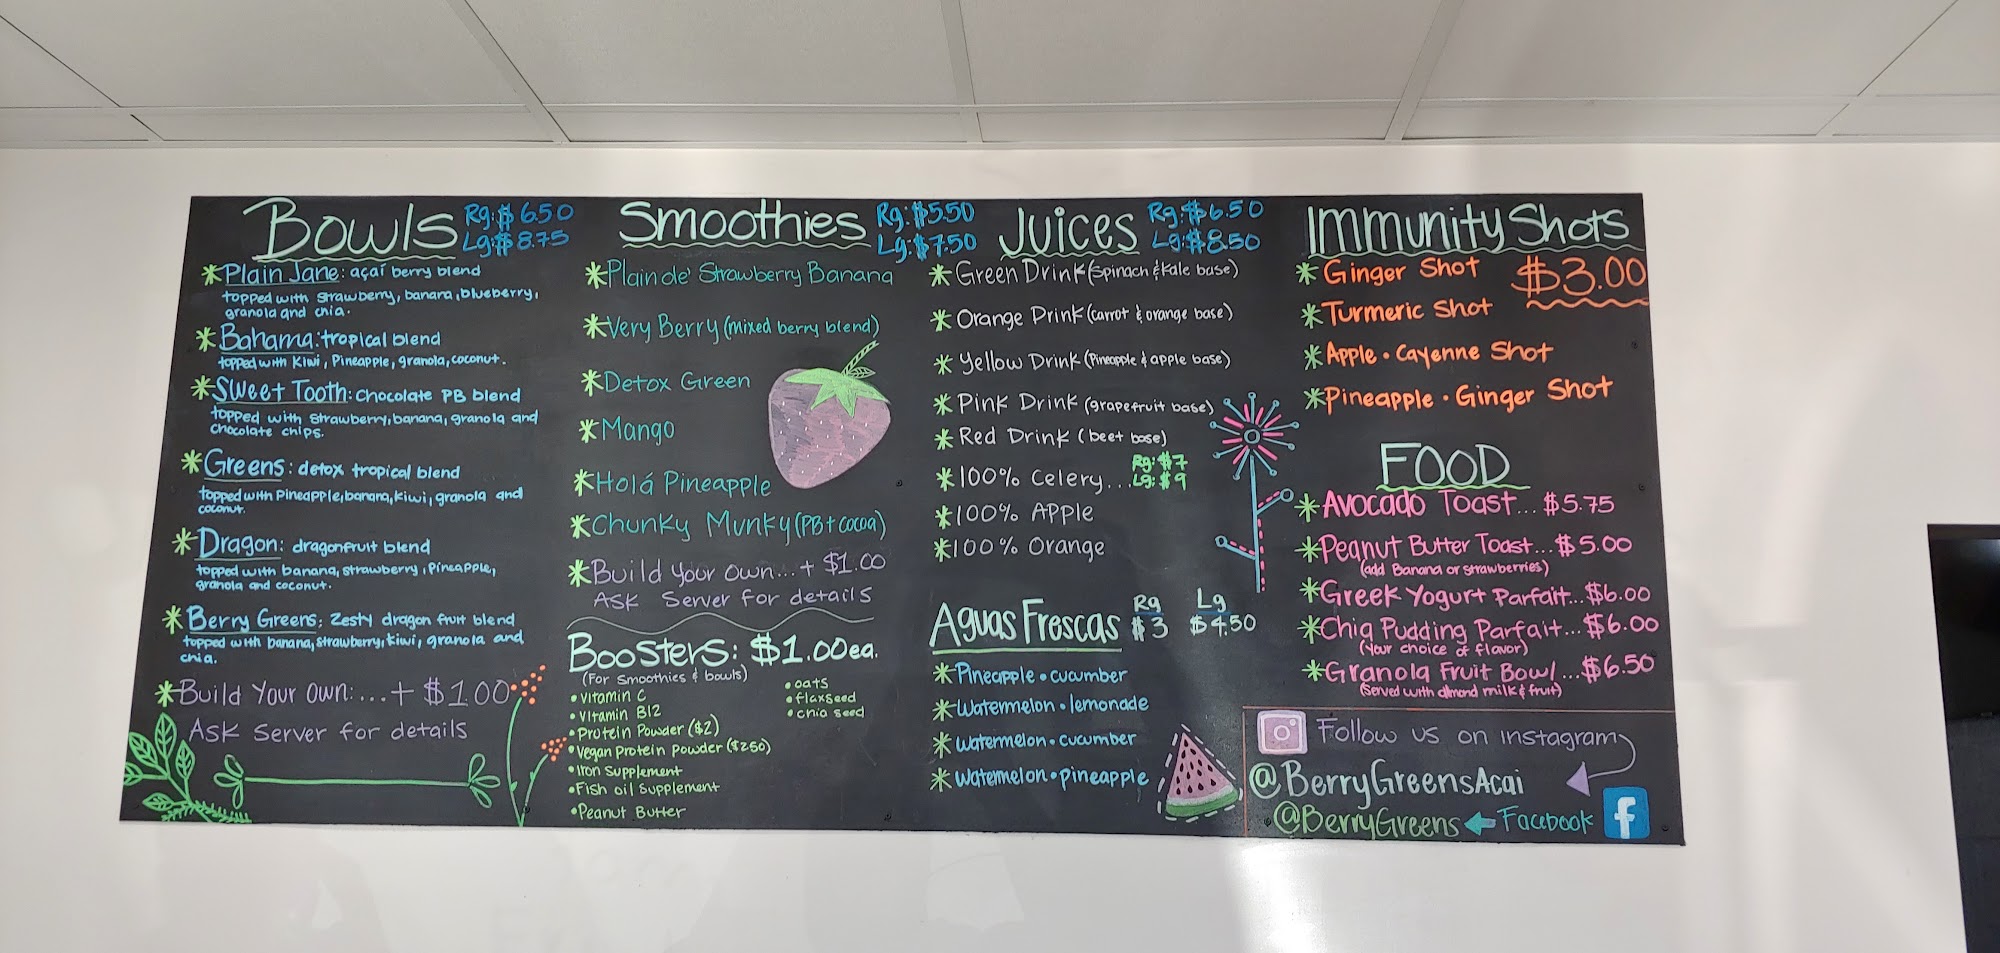 Bowls Rg:$6.50
Lg:$8.75
*Plain Jane: açaí berry blend
topped with strawberry, banana, blueberry,
granola and chia.
*Bahama: tropical blend
topped with Kiwi, Pineapple, granola, coconut.
*Sweet Tooth: chocolate PB blend
topped with strawberry, banana, granola and
chocolate chips.
*Greens: detox tropical blend
topped with Pineapple, banana, kiwi, granola and
coconut.
*Dragon: dragonfruit blend
topped with banana, strawberry, Pineapple,
granola and coconut.
*Berry Greens: Zesty dragon fruit blend
topped with banana, strawberry, kiwi, granola and
chia.
*Build Your Own: ...+ $1.00
Ask Server for details
Smoothies Rg:$5.50
Lg:$7.50
*Plain ole' Strawberry Banana
*Very Berry (mixed berry blend)
*Detox Green
*Mango
*Holá Pineapple
*Chunky Munky (PB + cocoa)
*Build your own...+ $1.00
Ask Server for details
Boosters: $1.00 ea.
(For smoothies & bowls)
•Vitamin C
•Vitamin B12
•Protein Powder ($2)
•Vegan Protein powder ($2.50)
•Iron supplement
•Fish oil supplement
•Peanut Butter
•oats
•flaxseed
•chia seed
Juices Rg:$6.50
Lg:$8.50
*Green Drink (Spinach & Kale base)
*Orange Drink (carrot & orange base)
*Yellow Drink (Pineapple & apple base)
*Pink Drink (grapefruit base)
*Red Drink (beet base)
*100% Celery... Rg:$7
Lg:$9
*100% Apple
*100% Orange
Aguas Frescas Rg $3 Lg $4.50
*Pineapple • cucumber
*Watermelon • lemonade
*Watermelon • cucumber
*Watermelon • pineapple
Immunity Shots
$3.00
*Ginger Shot
*Turmeric Shot
*Apple • Cayenne Shot
*Pineapple • Ginger Shot
FOOD
*Avocado Toast... $5.75
*Peanut Butter Toast... $5.00
(add Banana or strawberries)
*Greek Yogurt Parfait... $6.00
*Chia Pudding Parfait... $6.00
(Your choice of flavor)
*Granola Fruit Bowl... $6.50
(Served with almond milk & fruit)
Follow us on instagram
@BerryGreensAcai
@BerryGreens Facebook
f